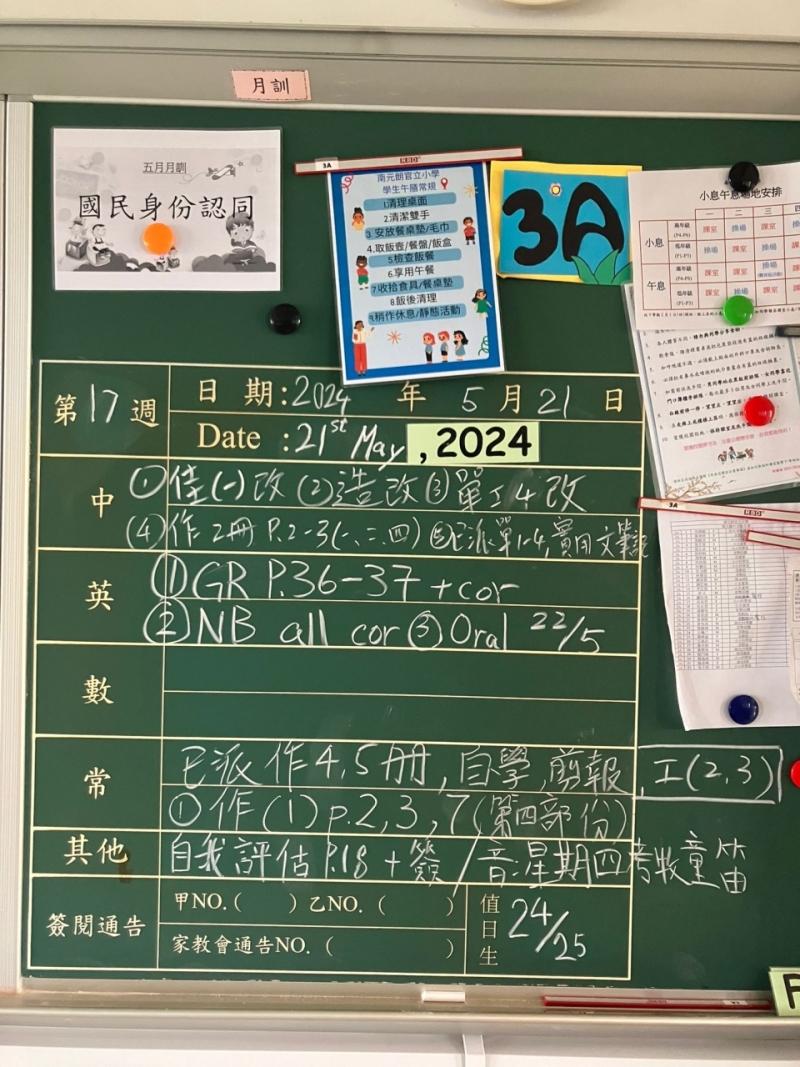 月訓
五月月訓
國民身份認同
3A
南元朗官立小學
學生午膳常規
1清理桌面
2.清潔雙手
3.安放餐桌墊/毛巾
4.取飯壺/餐盤/飯盒
5.檢查飯餐
6.享用午餐
7.收拾食具/餐桌墊
8.飯後清理
9.稍作休息/靜態活動
3A
小息午息場地安排
一 二 三 四
小息
高年級 (P4-P6) 課室 操場 課室
低年級 (P1-P3) 操場 課室 操場
午息
高年級 (P4-P6) 課室 課室 操場
低年級 (P1-P3) 課室 操場 課室
第17週
日期:2024 年 5 月 21 日
Date :21st May , 2024
中
①佳(一)改 ②造改 ③單工4改
(4)作2冊 P.2-3(一、二、四) ⑤已派單1-4,實用文筆記
英
①GR P.36-37 + cor
②NB all cor ③Oral 22/5
數
常
已派作4,5冊,自學,剪報,工(2,3)
①作(1) p.2,3,7(第四部份)
其他
自我評估 P.18 + 簽/音:星期四考牧童笛
簽閱通告
甲NO.( ) 乙NO.( )
家教會通告NO.( )
值日生
24/25
3A